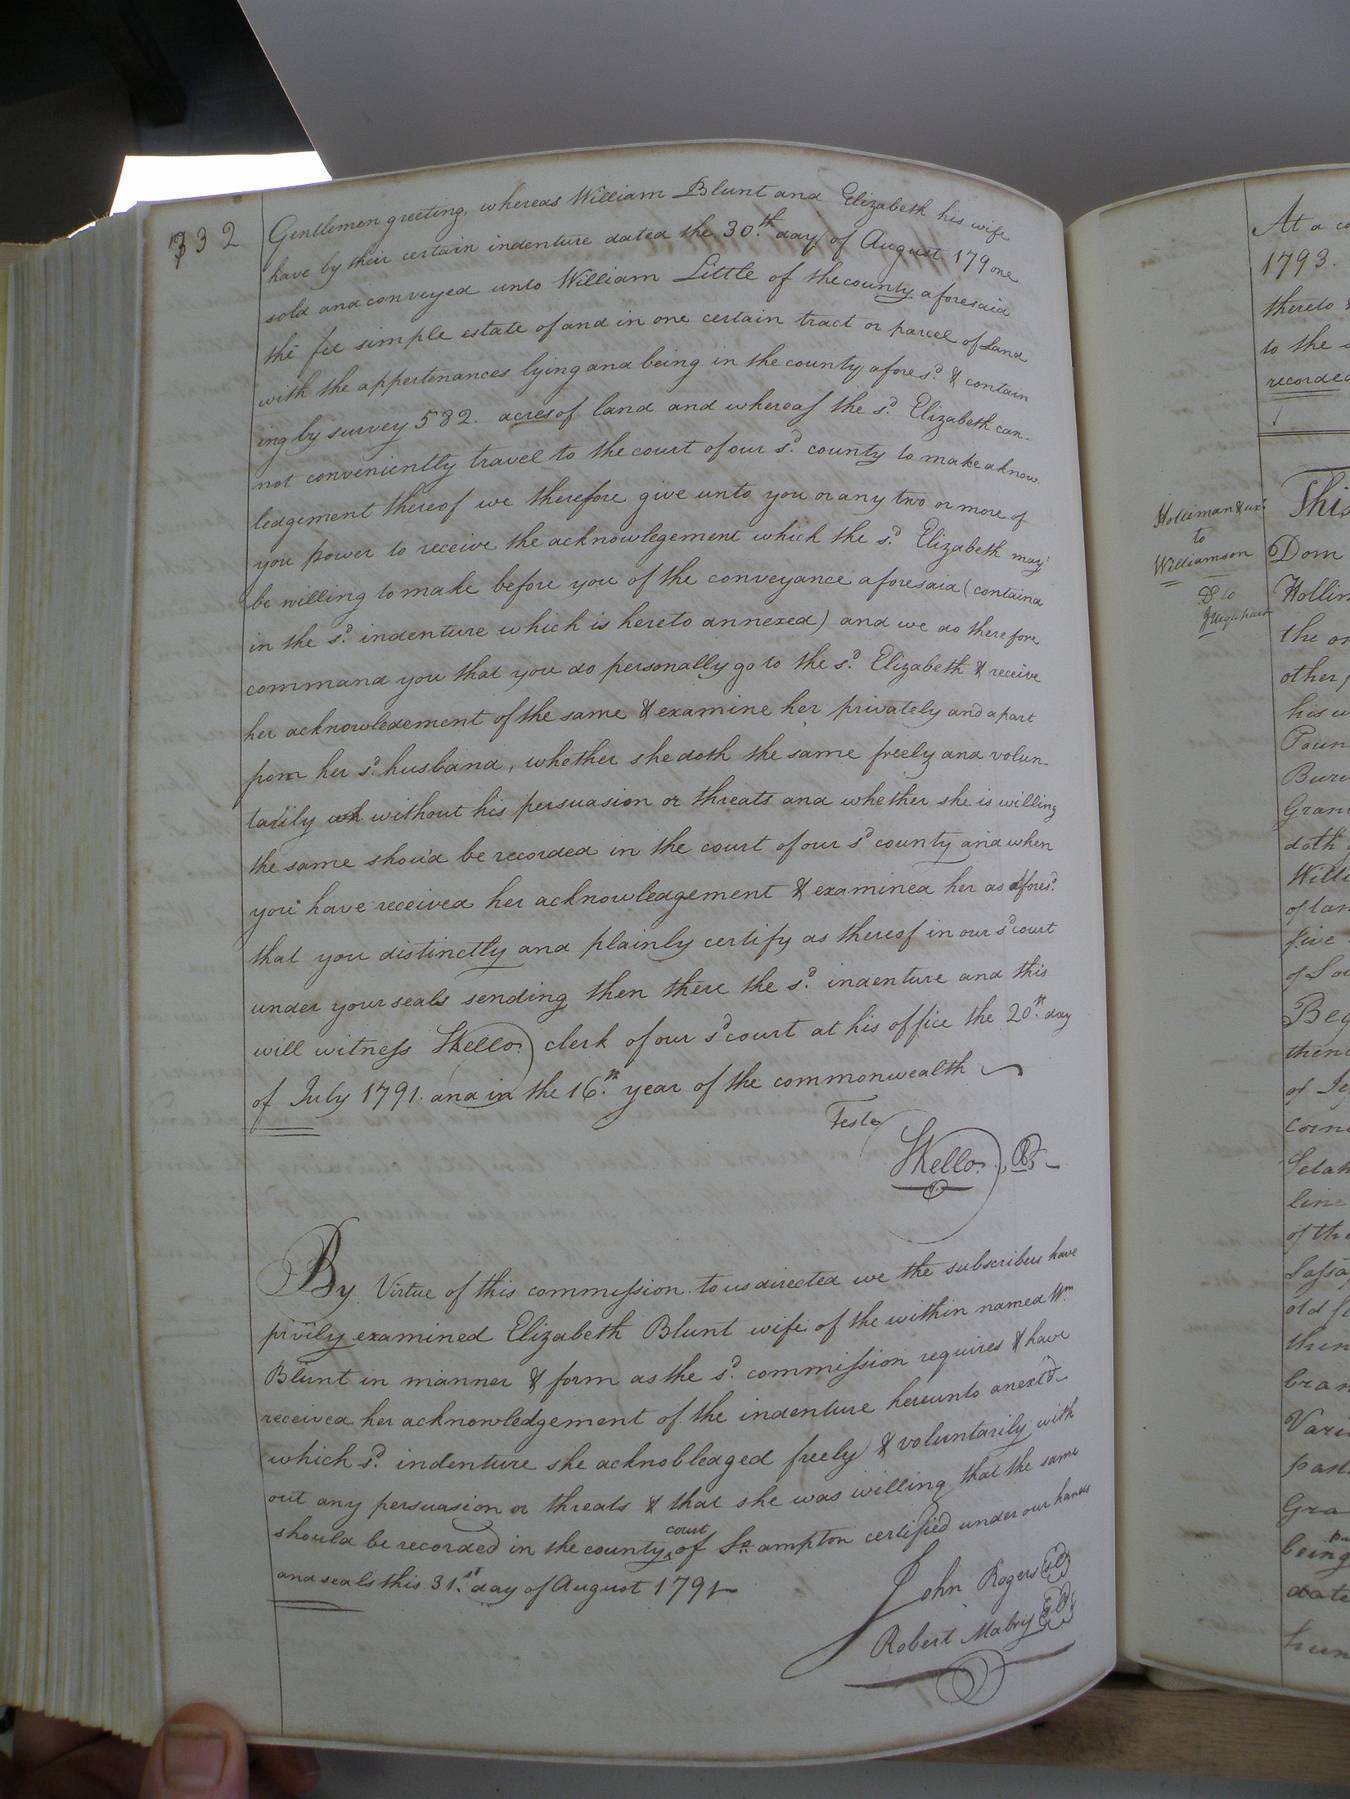 732
Gentlemen greeting, whereas William Blunt and Elizabeth his wife
have by their certain indenture dated the 30.th day of August 179one
sold and conveyed unto William Little of the county aforesaid
the fee simple estate of and in one certain tract or parcel of Land
with the appertenances lying and being in the county afores.d & contain
ing by survey 532. acres of land and whereas the s.d Elizabeth can-
not conveniently travel to the court of our s.d county to make aknow-
ledgement thereof we therefore give unto you or any two or more of
you power to receive the acknowlegement which the s.d Elizabeth may
be willing to make before you of the conveyance aforesaid (containd
in the s.d indenture which is hereto annexed) and we do therefore
command you that you do personally go to the s.d Elizabeth & receive
her acknowledement of the same & examine her privately and apart
from her s.d husband, whether she doth the same freely and volun-
tarily without his persuasion or threats and whether she is willing
the same shou'd be recorded in the court of our s.d county and when
you have received her acknowledgement & examined her as afores.d
that you distinctly and plainly certify as thereof in our s.d court
under your seals sending then there the s.d indenture and this
will witness SKello clerk of our s.d court at his office the 20.th day
of July 1791. and in the 16.th year of the commonwealth
Teste
SKello.
By Virtue of this commission to us directed we the subscribers have
privily examined Elizabeth Blunt wife of the within named Wm
Blunt in manner & form as the s.d commission requires & have
received her acknowledgement of the indenture hereunto anex'd
which s.d indenture she acknobledged freely & voluntarily with
out any persuasion or threats & that she was willing that the same
should be recorded in the county court of So. ampton certified under our hands
and seals this 31.st day of August 1791
John Rogers
Robert Mabry
At a co
1793.
thereto
to the
recorded
Holliman & ux.
to
Williamson
This
Dom
Hollin
the on
other
his w
Poun
Gran
doth
Willi
of lan
five
of So
Beg
thenc
of
corne
line
of the
old
then
bran
Vari
past
Gra
being
date